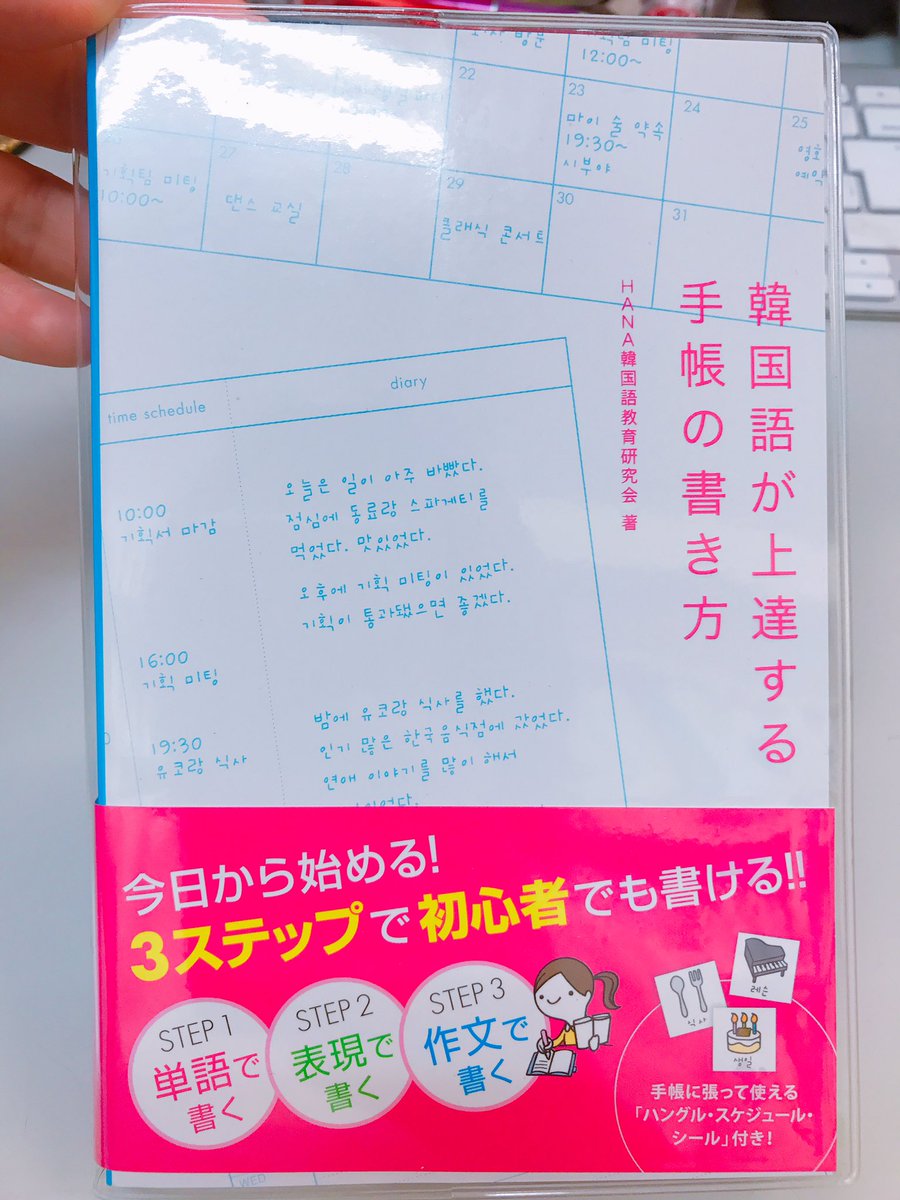 미팅
12:00~
22
23
마이 술 약속
19:30~
시부야
24
25
영호
기획팀 미팅
10:00~
27
댄스 교실
28
29
클래식 콘서트
30
31
韓国語が上達する
手帳の書き方
HANA韓国語教育研究会 著
time schedule
diary
10:00
기획서 마감
오늘은 일이 아주 바빴다.
점심에 동료랑 스파게티를
먹었다. 맛있었다.
오후에 기획 미팅이 있었다.
기획이 통과됐으면 좋겠다.
16:00
기획 미팅
19:30
유코랑 식사
밤에 유코랑 식사를 했다.
인기 많은 한국음식점에 갔었다.
연애 이야기를 많이 해서
今日から始める!
3ステップで初心者でも書ける!!
STEP 1
単語で
書く
STEP 2
表現で
書く
STEP 3
作文で
書く
식사
레슨
생일
手帳に張って使える
「ハングル・スケジュール・
シール」付き!
WED